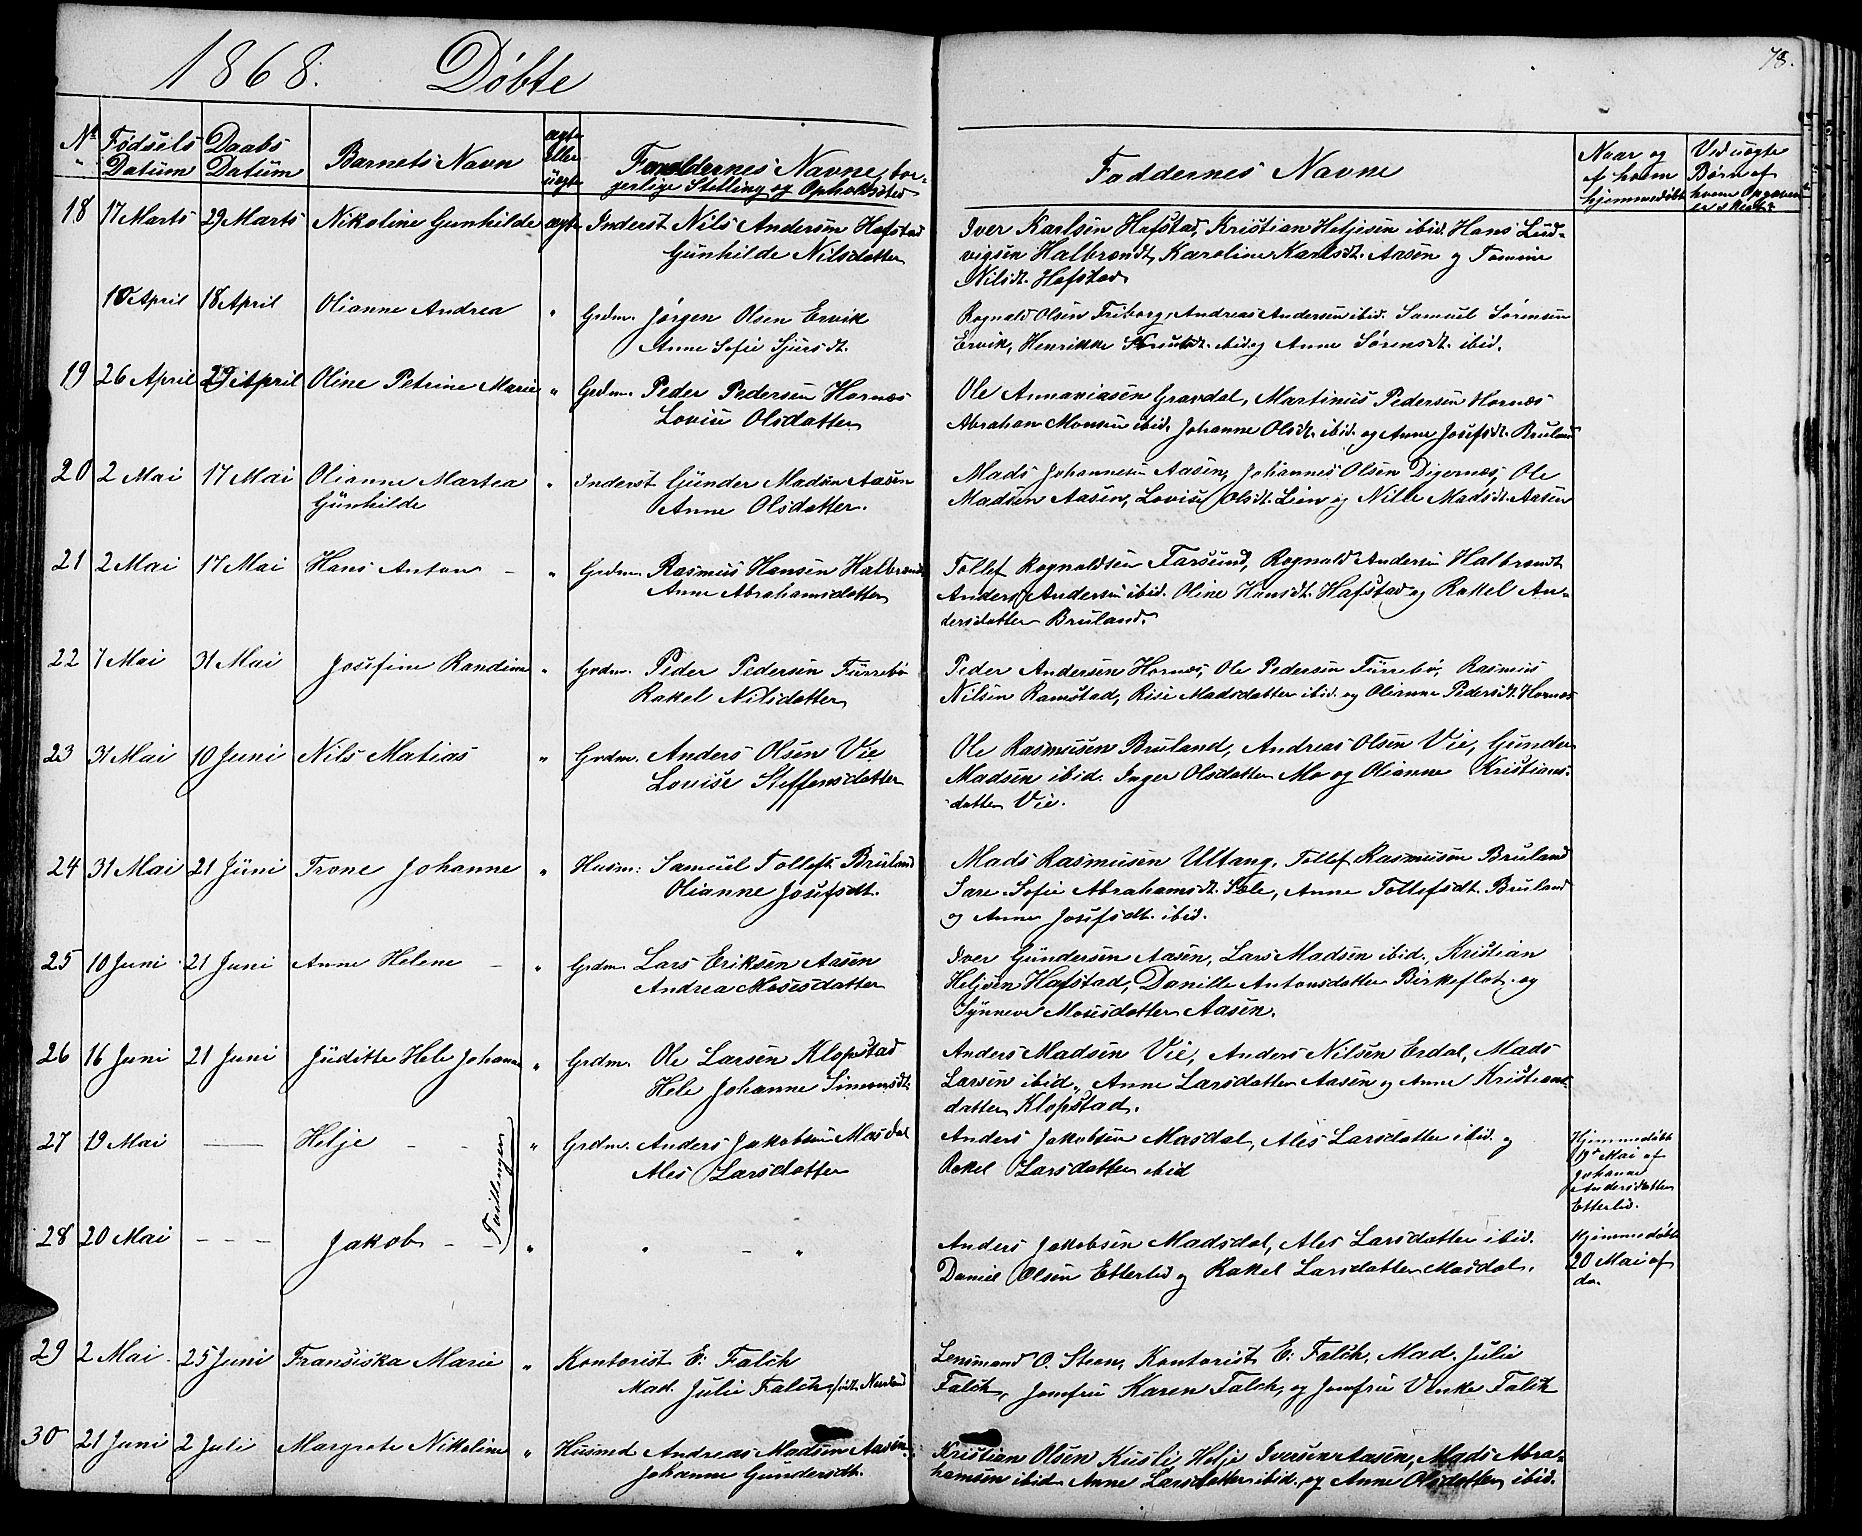 1868. Døbte
78.
No Fødsels Datum
Daabs Datum
Barnets Navn
ægte eller uægte
Forældrenes Navne, bor-
gerlige Stilling og Opholdsted
Faddernes Navne
Naar og af hvem hjemmedøbt
Ved uægte Børn af hvem Opgaven er skeet
18 17 Marts 29 Marts Nikoline Gunhilde ægte Inderst Nils Andersen Hafstad
Gunhilde Nilsdatter
Iver Karlsen Hafstad, Kristian Heljesen ibid. Hans Lud-
vigsen Halbrændt, Karoline Karlsdt. Aasen og Tomine
Nilsdt. Hafstad
10 April 18 April Olianne Andrea " Grdm. Jørgen Olsen Ervik
Anne Sofie Sjursdt.
Rognald Olsen Friborg, Andreas Andersen ibid. Samuel Sørensen
Ervik, Henrikke ibid. og Anne Sørensdt. ibid.
19 26 April 29 April Oline Petrine Marie " Grdm. Peder Pedersen Hornæs
Lovise Olsdatter
Ole Annaniasen Gravdal, Martinus Pedersen Hornæs
Abraham Monsen ibid. Johanne Olsdt. ibid. og Anne Josefsdt. Bruland
20 2 Mai 17 Mai Olianne Martea " Inderst Gunder Madsen Aasen
Gunhilde
Anne Olsdatter.
Mads Johannesen Aasen, Johannes Olsen Digernæs, Ole
Madsen Aasen, Lovise Olsdt. Lien og Nille Madsdt. Aasen
21 2 Mai 17 Mai Hans Anton - " Grdm. Rasmus Hansen Halbrændt
Anne Abrahamsdatter
Tollef Rognaldsen Farsund, Rognald Andersen Halbrændt
Anders Andersen ibid. Oline Hansdt. Hafstad og Rakel An-
dersdatter Bruland.
22 7 Mai 31 Mai Josefine Randine " Grdm. Peder Pedersen Furrebø
Rakel Nilsdatter
Peder Andersen Hornæs, Ole Pedersen Furrebø, Rasmus
Nilsen Ramstad, Risi Madsdatter ibid. og Olianne Pedersdt. Hornæs
23 31 Mai 10 Juni Nils Matias " Grdm. Anders Olsen Vie
Lovise Steffensdatter
Ole Rasmusen Bruland, Andreas Olsen Vie, Gunder
Madsen ibid. Inger Olsdatter Mo og Olianne Kristians-
datter Vie.
24 31 Mai 21 Juni Trone Johanne " Husm: Samuel Tollefs. Bruland
Olianne Josefsdt.
Mads Rasmusen Ultang, Tollef Rasmusen Bruland
Sare Sofie Abrahamsdt. Sole, Anne Tollefsdt. Bruland
og Anne Josefsdt. ibid.
25 10 Juni 21 Juni Anne Helene - " Grdm. Lars Eriksen Aasen
Andrea Mosesdatter
Iver Gundersen Aasen, Lars Madsen ibid., Kristian
Heljsen Hafstad, Danille Antonsdatter Birkeflot. og
Synneve Mosesdatter Aasen.
26 16 Juni 21 Juni Juditte Hele Johanne " Grdm. Ole Larsen Klopstad
Hele Johanne Simonsdt.
Anders Madsen Vie, Anders Nilsen Erdal, Mads
Larsen ibid., Anne Larsdatter Aasen og Anne Kristians-
datter Klopstad.
27 19 Mai — Helje - - " Grdm. Anders Jakobsen Masdal
Ales Larsdatter
Anders Jakobsen Masdal, Ales Larsdatter ibid. og
Rakel Larsdatter ibid
Hjemmedøbt
19de Mai af
Johanne
Andersdatter
Etterlid.
Tvillinger
28 20 Mai - - - Jakob - - " " - "
Anders Jakobsen Madsdal, Ales Larsdatter ibid.
Daniel Olsen Etterlid og Rakel Larsdatter Masdal.
Hjemmedøbt
20 Mai af
do.
29 2 Mai 25 Juni Fransiska Marie " Kontorist E: Falch
Mad. Julie Falch, født
Lensmand O. Steen, Kontorist E: Falch, Mad. Julie
Falch, Jomfru Karen Falch, og Jomfru Vinke Falch
30 21 Juni 2 Juli Margrete Nikoline " Husmd Andreas Madsen Aasen
Johanne Gundersdt.
Kristian Olsen Kusli, Helje Iversen Aasen, Mads Abra-
hamsen ibid. Anne Larsdatter ibid. og Anne Olsdatter ibid.